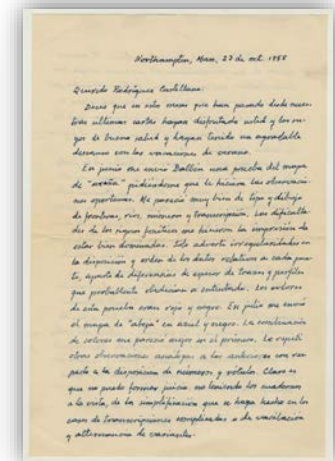 Northampton, Mass, 27 de oct. 1955
Querido Rodríguez Castellano:
Deseo que en estos meses que han pasado desde nues-
tras últimas cartas hayan disfrutado usted y los su-
yos de buena salud y hayan tenido un agradable
descanso con las vacaciones de verano.
En junio me envió Balbín una prueba del mapa
de "araña" pidiéndome que le hiciera las observacio-
nes oportunas. Me pareció muy bien de tipo y dibujo
de fronteras, ríos, números y transcripción. Las dificulta-
des de los signos fonéticos me hicieron la impresión de
estar bien dominadas. Sólo advertí irregularidades en
la disposición y orden de los datos relativos a cada pun-
to, aparte de diferencias de espesor de trazos y perfiles
que probablemente obedecían a entintado. Los colores
de esta prueba eran rojo y negro. En julio me envió
el mapa de "abeja" en azul y negro. La combinación
de colores me pareció mejor en el primero. Le repetí
otras observaciones análogas a las anteriores con res-
pecto a la disposición de números y rótulos. Claro es
que no puedo formar juicio, no teniendo los cuadernos
a la vista, de la simplificación que se haya hecho en los
casos de transcripciones complicadas o de vacilación
y alternancia de variantes.